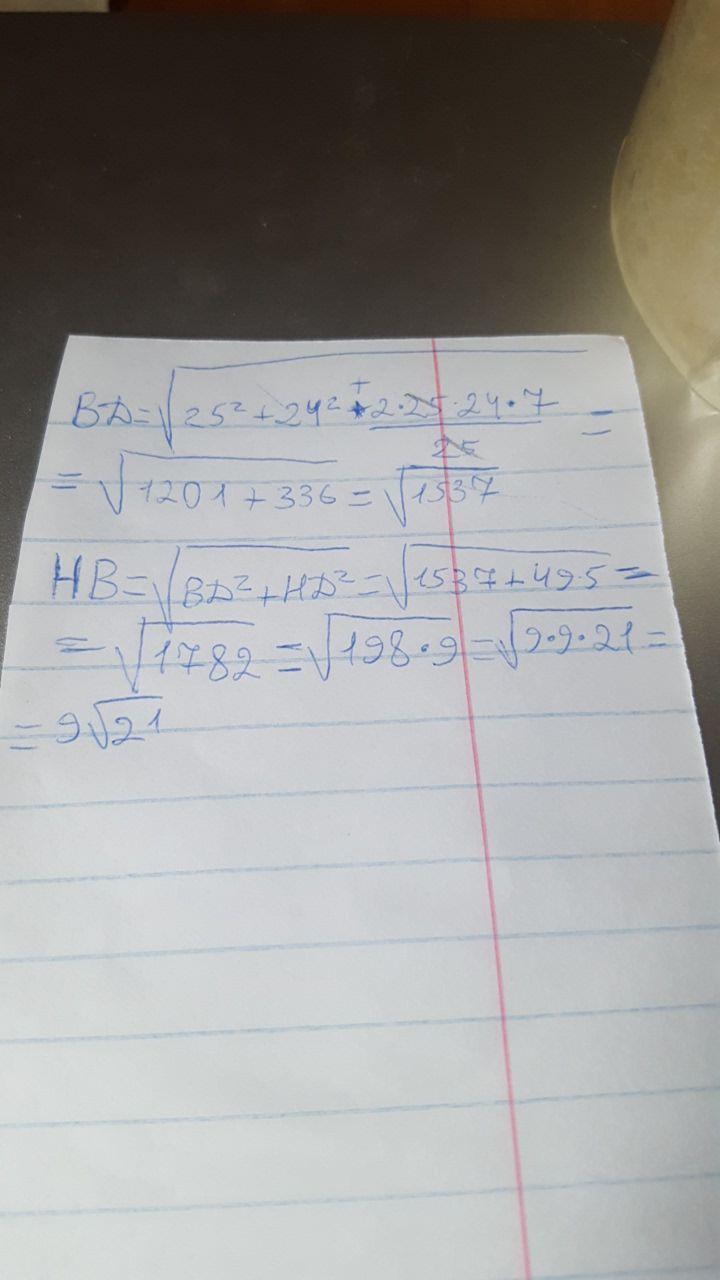 BD=√25²+24²+2·25·24·7 =
25
= √1201+336 = √1537
HB=√BD²+HD² = √1537+49·5 =
= √1782 = √198·9 = √9·9·21 =
= 9√21